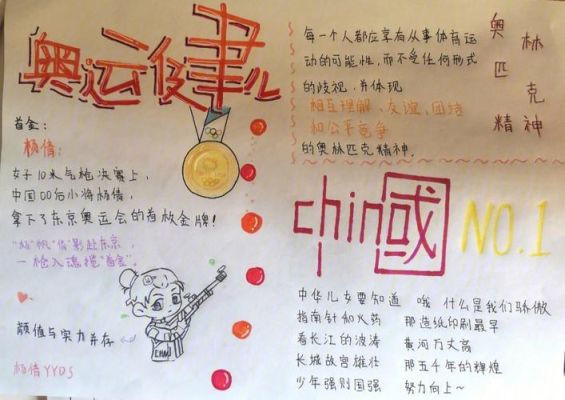 奥运健儿
首金:
杨倩:
女子10米气枪决赛上,
中国00后小将杨倩,
拿下了东京奥运会的首枚金牌!
"杨"帆"倩"影赴东京,
一枪入魂揽"首金".
颜值与实力并存
杨倩YYDS
每一个人都应享有从事体育运
动的可能性,而不受任何形式
的歧视,并体现
相互理解、友谊、团结
和公平竞争
的奥林匹克精神.
奥林匹克精神
chin国 NO.1
中华儿女要知道 哦 什么是我们骄傲
指南针和火药 那造纸印刷最早
看长江的波涛 黄河万丈高
长城故宫雄壮 那五千年的辉煌
少年强则国强 努力向上~